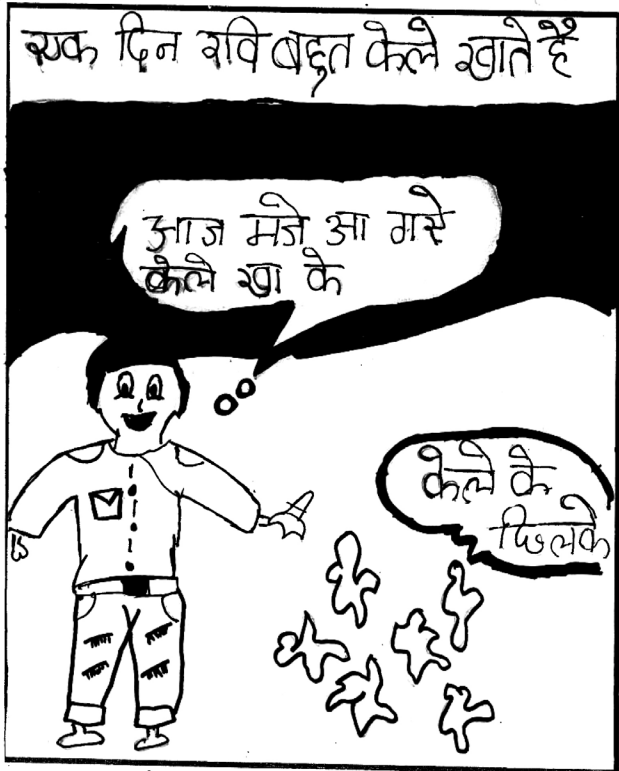 एक दिन रवि बहुत केले खाते है
आज मजे आ गये
केले खा के
केले के
छिलके